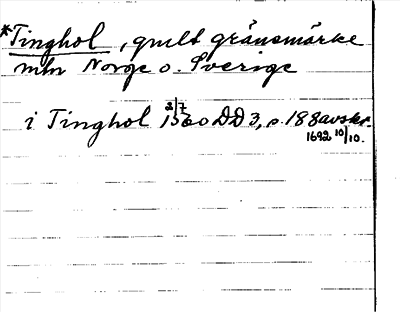 *Tinghol, gmlt gränsmärke
mlm Norge o. Sverige
i Tinghol 2/7 1560 DD3, s. 188 avskr.
1692 10/10.